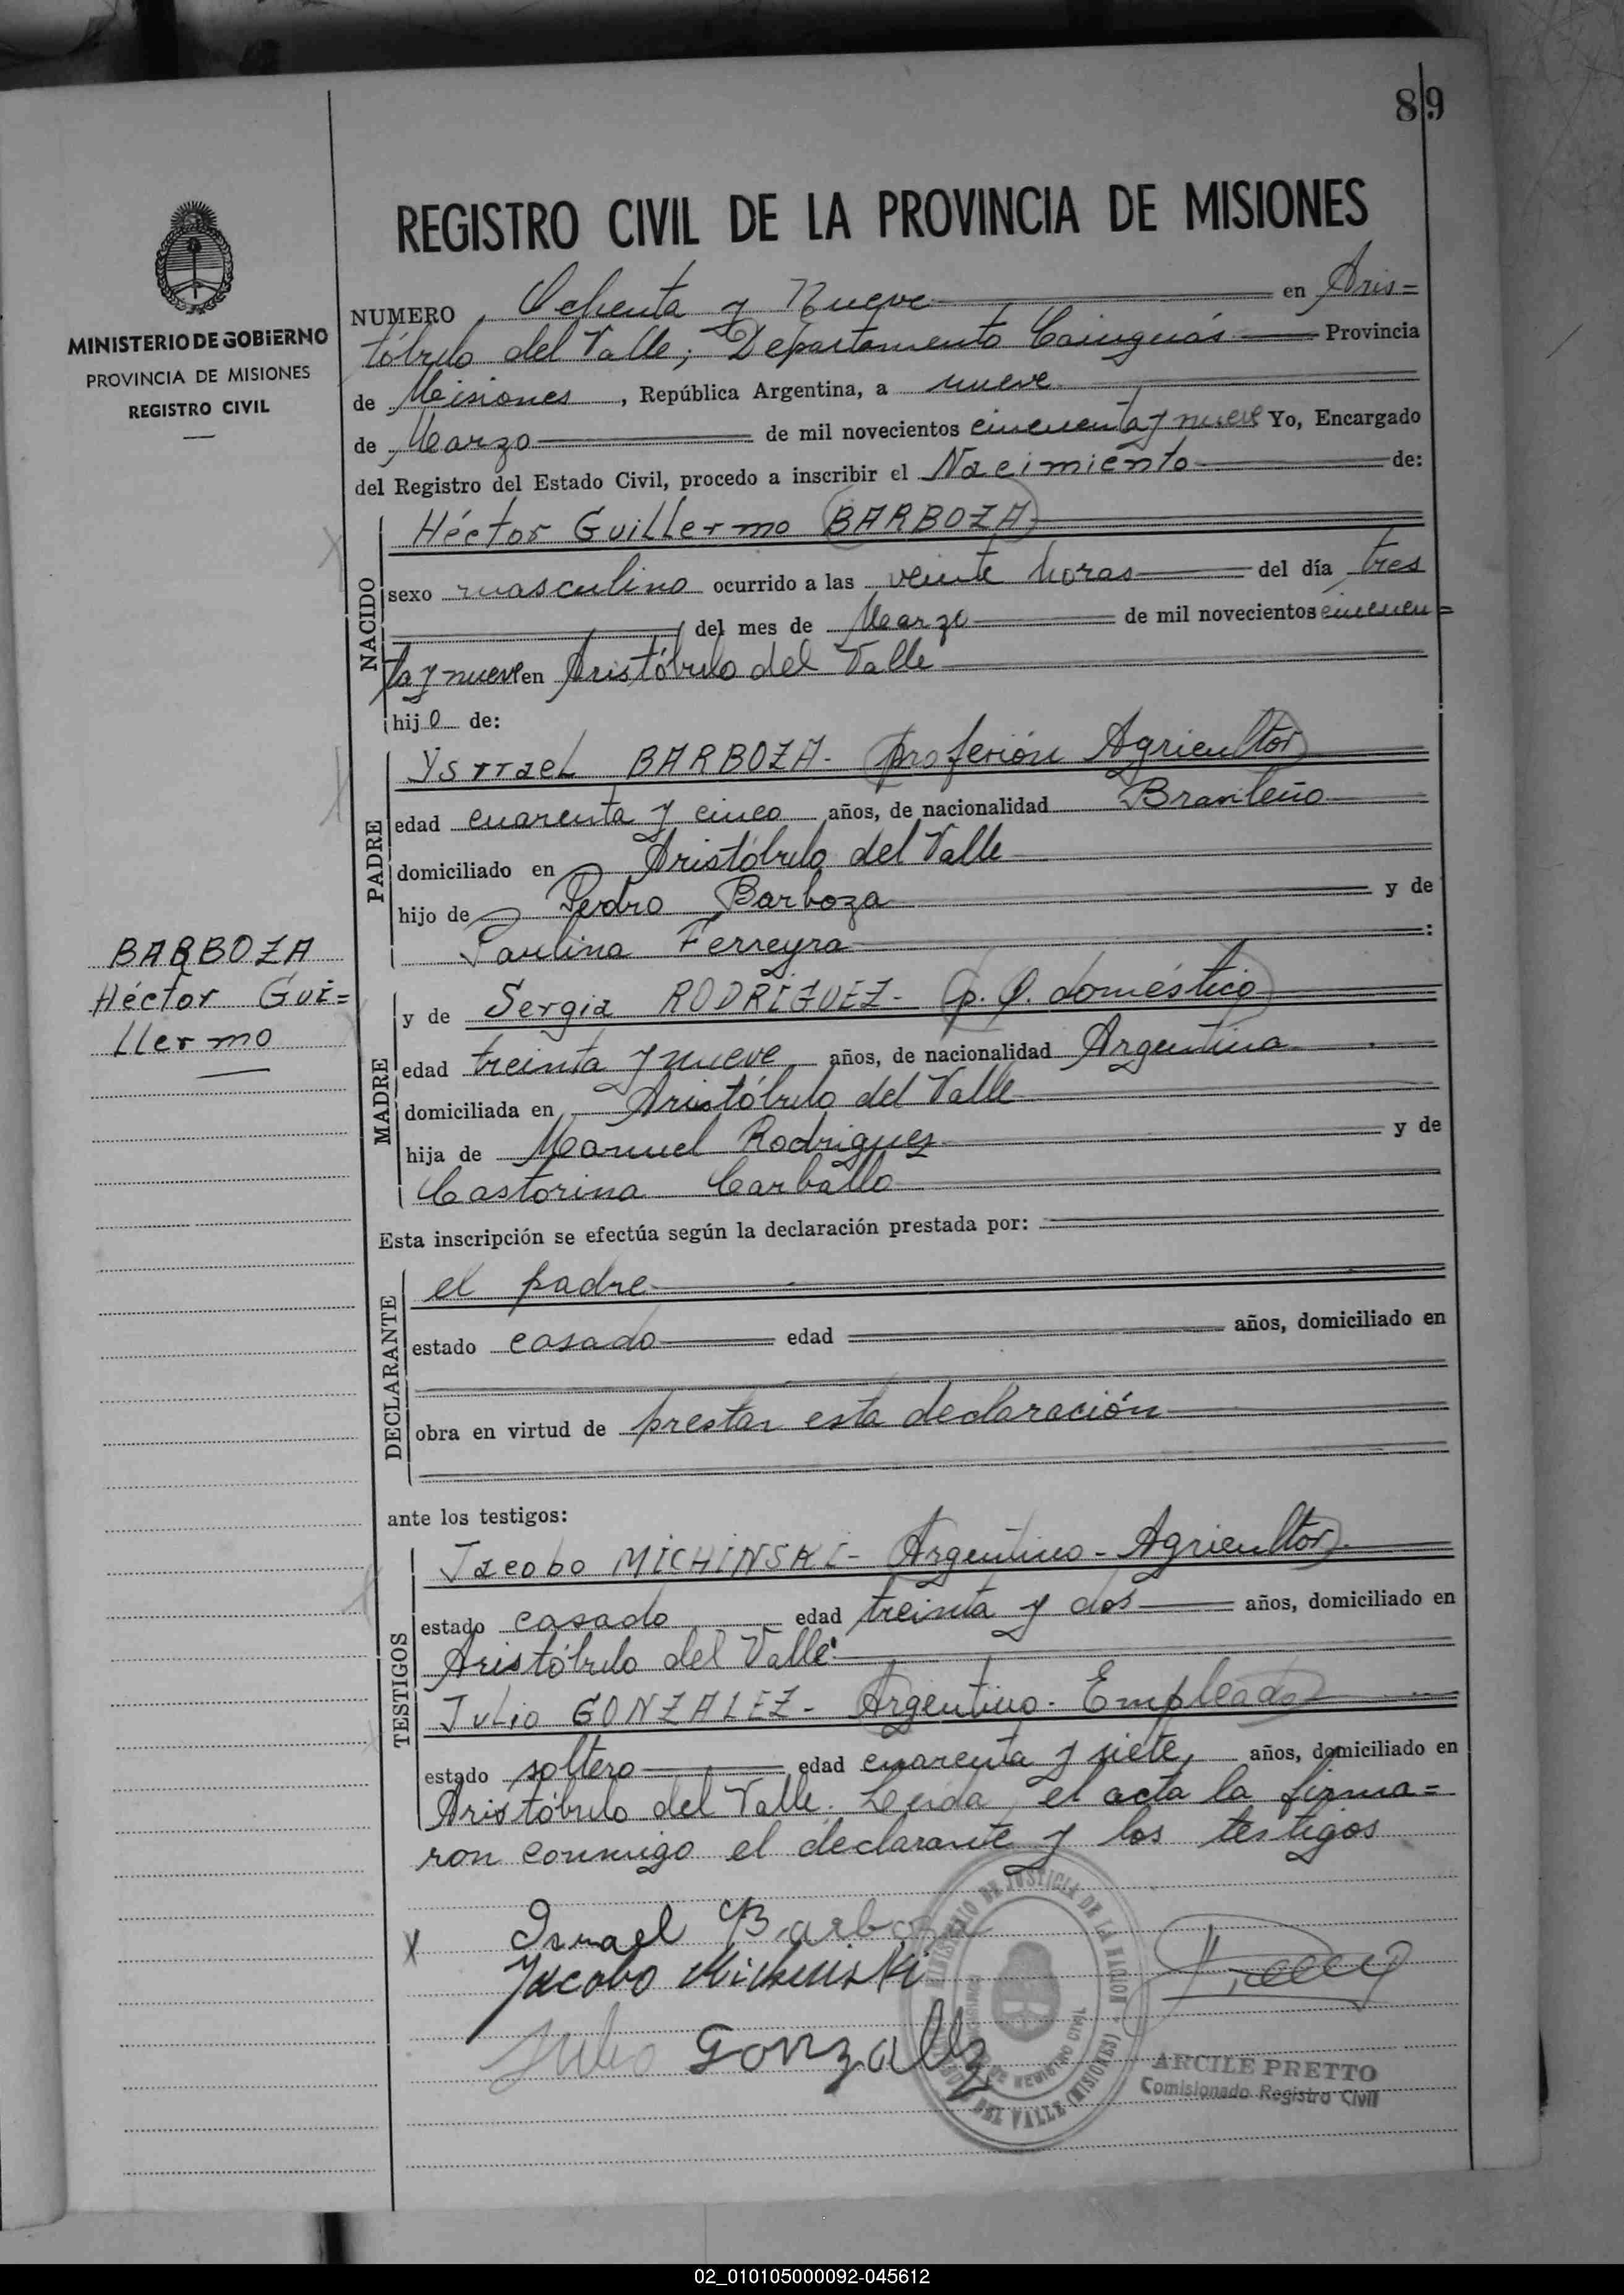 89
REGISTRO CIVIL DE LA PROVINCIA DE MISIONES
MINISTERIO DE GOBIERNO
PROVINCIA DE MISIONES
REGISTRO CIVIL
NUMERO Ochenta y Nueve en Aris=
tóbulo del Valle; Departamento Cainguás Provincia
de Misiones, República Argentina, a nueve
de Marzo de mil novecientos cincuenta y nueve Yo, Encargado
del Registro del Estado Civil, procedo a inscribir el Nacimiento de:
NACIDO
Héctor Guillermo BARBOZA
sexo masculino ocurrido a las veinte horas del día tres
del mes de Marzo de mil novecientos cincuen=
ta y nueve en Aristóbulo del Valle
hijo de:
PADRE
Ysrrael BARBOZA- (profesión Agricultor)
edad cuarenta y cinco años, de nacionalidad Brasileño
domiciliado en Aristóbulo del Valle
hijo de Pedro Barboza y de
Paulina Ferreyra:
BARBOZA
Héctor Gui=
llermo
MADRE
y de Sergia RODRÍGUEZ- (p. Q. doméstico)
edad treinta y nueve años, de nacionalidad Argentina
domiciliada en Aristóbulo del Valle
hija de Manuel Rodrigues y de
Castorina Carballo
Esta inscripción se efectúa según la declaración prestada por:
DECLARANTE
el padre
estado casado edad años, domiciliado en
obra en virtud de prestar esta declaración
ante los testigos:
TESTIGOS
Jacobo MICHINSKI- (Argentino - Agricultor)
estado casado edad treinta y dos años, domiciliado en
Aristóbulo del Valle
Julio GONZALEZ- (Argentino- Empleado)
estado soltero edad cuarenta y siete, años, domiciliado en
Aristóbulo del Valle. Leida el acta la firma=
ron conmigo el declarante y los testigos
x Israel Barboza
Jacobo Michinski
Julio Gonzalez
MINISTERIO DE JUSTICIA DE LA NACION
DEL VALLE (MISIONES)
ARCILE PRETTO
Comisionado Registro Civil
02_010105000092-045612